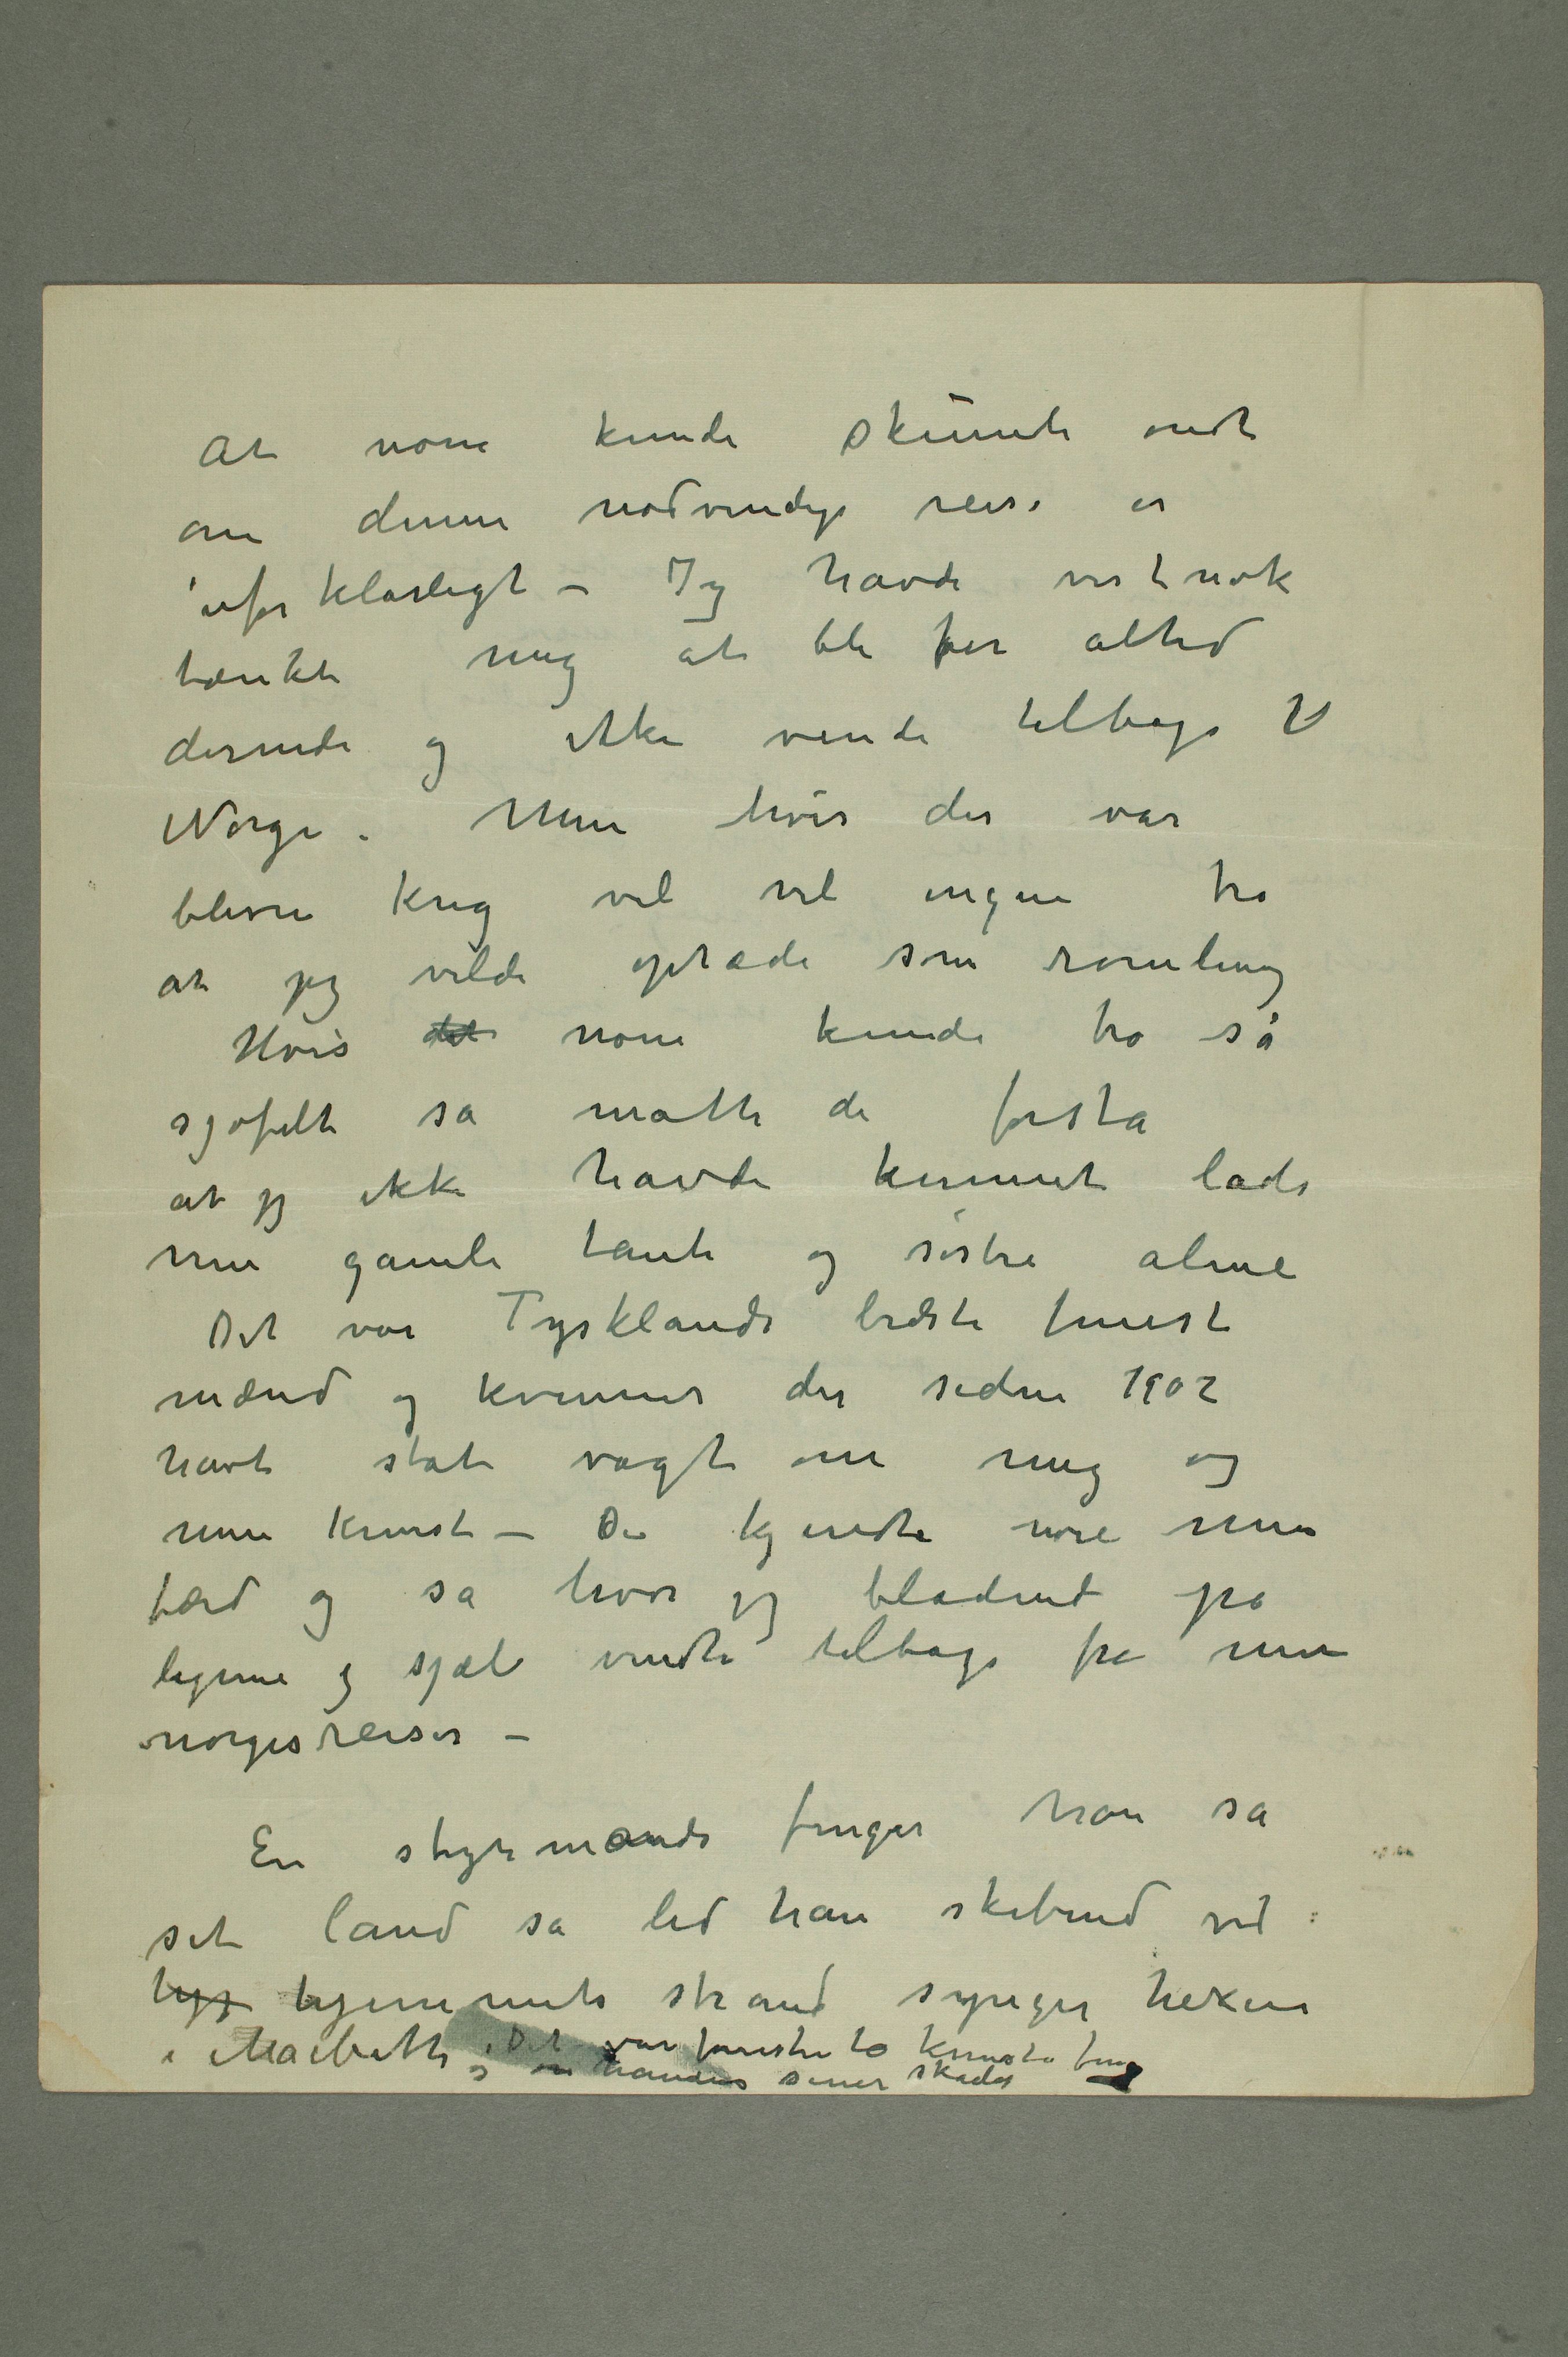 At noen kunde skumle ondt
om denne nødvendige reise er
uforklarligt – Jeg havde vistnok
tænkt mig at bli for altid
dernede og ikke vende tilbage til
Norge. Men hvis der var
bleven krig vil vel ingen tro
at jeg vilde optræde som rømling
Hvis det noen kunde tro så
sjofelt så måtte de forstå
at jeg ikke havde kunnet lade
min gamle tante og søster alene
Det var Tysklands bedste fineste
mænd og kvinner der siden 1902
havt stået vagt om mig og
min kunst – De kjendte nøie min
færd og så hvor jeg blødende på
legeme og sjæl vendte tilbage fra mine
norgesreiser –
En styrmands finger han så
sit land så led han skibbrud ved
hyj hjemmets strand synger hexene
i Macbeth, Det var fienstre to kunste fing
og en håndens sener skadet